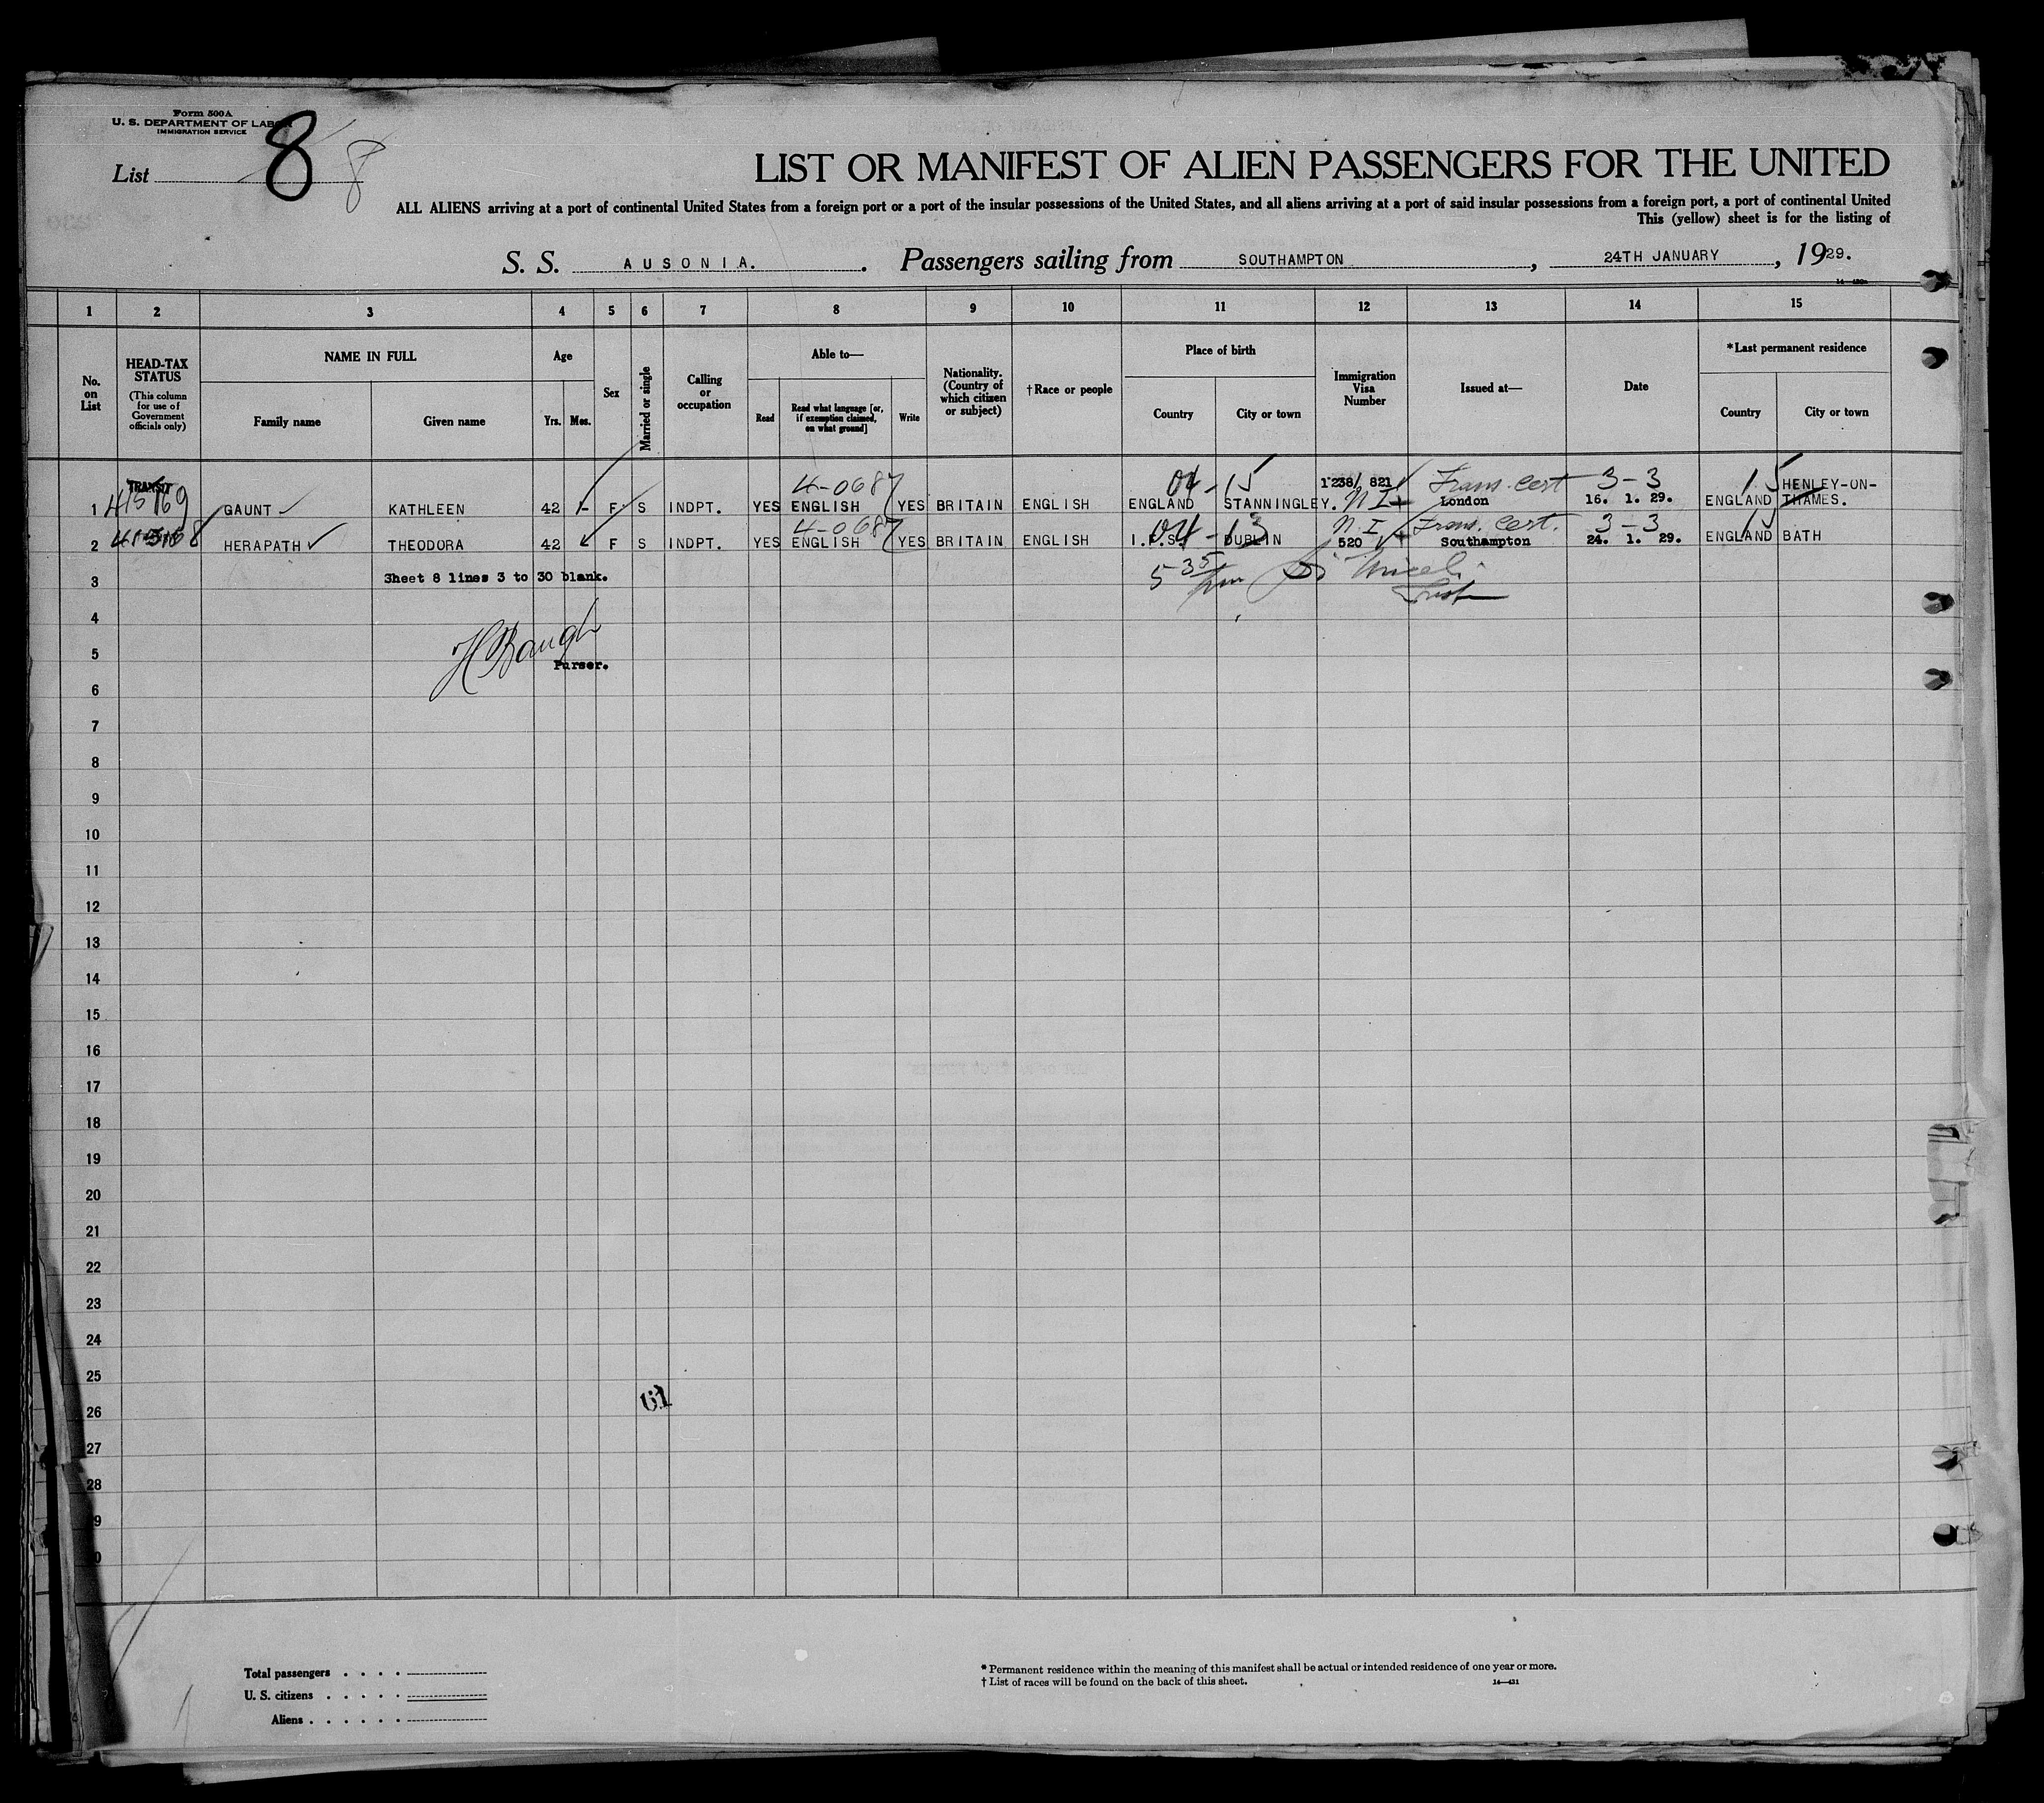 Form 500A
U. S. DEPARTMENT OF LABOR
IMMIGRATION SERVICE
List 8 8
LIST OR MANIFEST OF ALIEN PASSENGERS FOR THE UNITED
ALL ALIENS arriving at a port of continental United States from a foreign port or a port of the insular possessions of the United States, and all aliens arriving at a port of said insular possessions from a foreign port, a port of continental United
This (yellow) sheet is for the listing of
S. S. AUSONIA. Passengers sailing from SOUTHAMPTON, 24TH JANUARY, 1929.
1 2 3 4 5 6 7 8 9 10 11 12 13 14 15
No. on List
HEAD-TAX STATUS
(This column for use of Government officials only)
NAME IN FULL
Family name
Given name
Age
Yrs. Mos.
Sex
Married or single
Calling or occupation
Able to—
Read
Read what language [or, if exemption claimed, on what ground]
Write
Nationality. (Country of which citizen or subject)
†Race or people
Place of birth
Country
City or town
Immigration Visa Number
Issued at—
Date
*Last permanent residence
Country
City or town
TRANSIT 4-0687 04-15 1238/ 821 Trans. Cert 3-3 15 HENLEY-ON-
1 GAUNT KATHLEEN 42 F S INDPT. YES ENGLISH YES BRITAIN ENGLISH ENGLAND STANNINGLEY. N I London 16. 1. 29. ENGLAND THAMES.
4-0687 04-13 N.I. Trans. Cert. 3-3 15
2 HERAPATH THEODORA 42 F S INDPT. YES ENGLISH YES BRITAIN ENGLISH I.F.S. DUBLIN 520 Southampton 24. 1. 29. ENGLAND BATH
3 Sheet 8 lines 3 to 30 blank. 5 35 pm
4
5 H Baugh
Purser.
6
7
8
9
10
11
12
13
14
15
16
17
18
19
20
21
22
23
24
25
61
26
27
28
29
30
Total passengers . . . .
U. S. citizens . . . . .
Aliens . . . . . .
* Permanent residence within the meaning of this manifest shall be actual or intended residence of one year or more.
† List of races will be found on the back of this sheet.
14—431